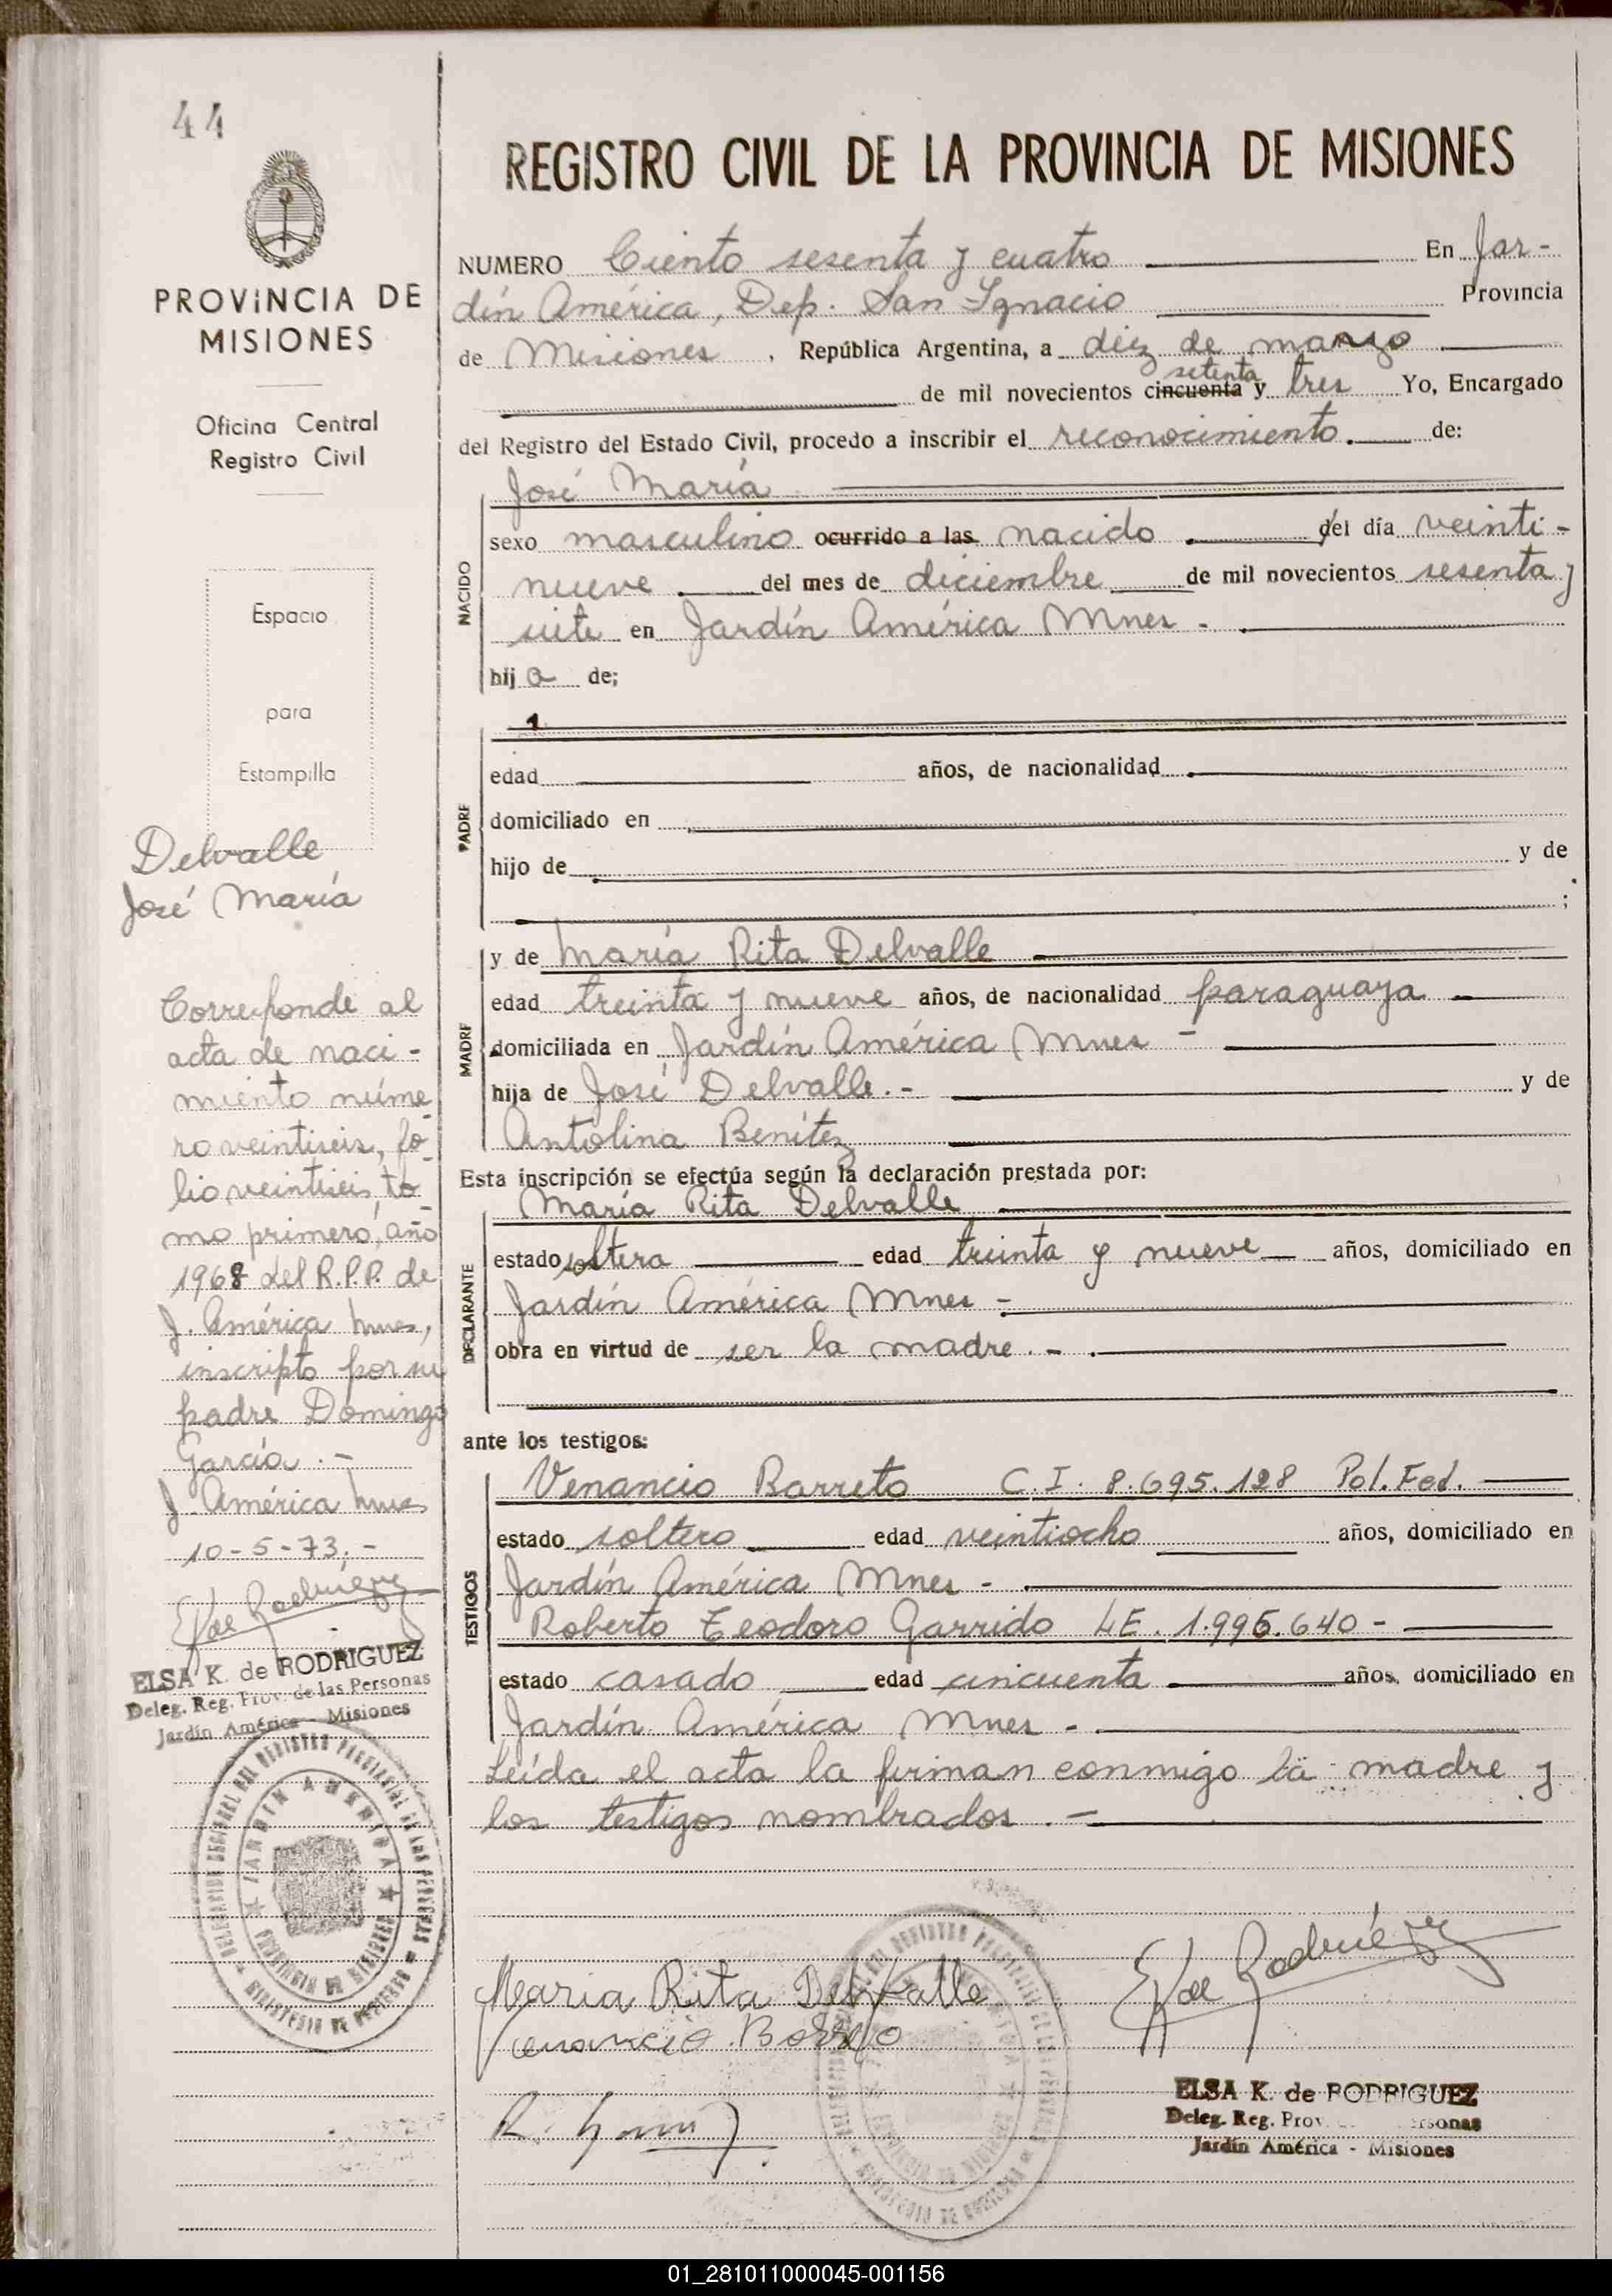 44
PROVINCIA DE
MISIONES
Oficina Central
Registro Civil
Espacio
para
Estampilla
Delvalle
José María
Corresponde al
acta de naci-
miento núme-
ro veintiseis, fo-
lio veintiseis, to-
mo primero, año
1968 del R.P.P. de
J. América Mnes,
inscripto por su
padre Domingo
García.-
J. América Mnes
10-5-73.-
ELSA K. de RODRIGUEZ
Deleg. Reg. Prov. de las Personas
Jardín América - Misiones
REGISTRO CIVIL DE LA PROVINCIA DE MISIONES
NUMERO Ciento sesenta y cuatro En Jar-
dín América, Dep. San Ignacio Provincia
de Misiones, República Argentina, a diez de marzo
setenta
de mil novecientos cincuenta y tres Yo, Encargado
del Registro del Estado Civil, procedo a inscribir el reconocimiento. de:
José María
NACIDO
sexo masculino ocurrido a las nacido del día veinti-
nueve del mes de diciembre de mil novecientos sesenta y
siete en Jardín América Mnes -
hij o de;
PADRE
edad años, de nacionalidad
domiciliado en
hijo de y de
;
MADRE
y de María Rita Delvalle
edad treinta y nueve años, de nacionalidad paraguaya
domiciliada en Jardín América Mnes -
hija de José Delvalle.- y de
Antolina Benítez
Esta inscripción se efectúa según la declaración prestada por:
DECLARANTE
María Rita Delvalle
estado soltera edad treinta y nueve años, domiciliado en
Jardín América Mnes -
obra en virtud de ser la madre.-
ante los testigos:
TESTIGOS
Venancio Barreto C.I. 8.695.128 Pol. Fed.
estado soltero edad veintiocho años, domiciliado en
Jardín América Mnes -
Roberto Teodoro Garrido LE. 1.996.640-
estado casado edad cincuenta años, domiciliado en
Jardín América Mnes -
Leída el acta la firman conmigo la madre y
los testigos nombrados.-
Maria Rita Delvalle
Venancio Barreto
ELSA K. de RODRIGUEZ
Deleg. Reg. Prov.
Jardín América - Misiones
01_281011000045-001156